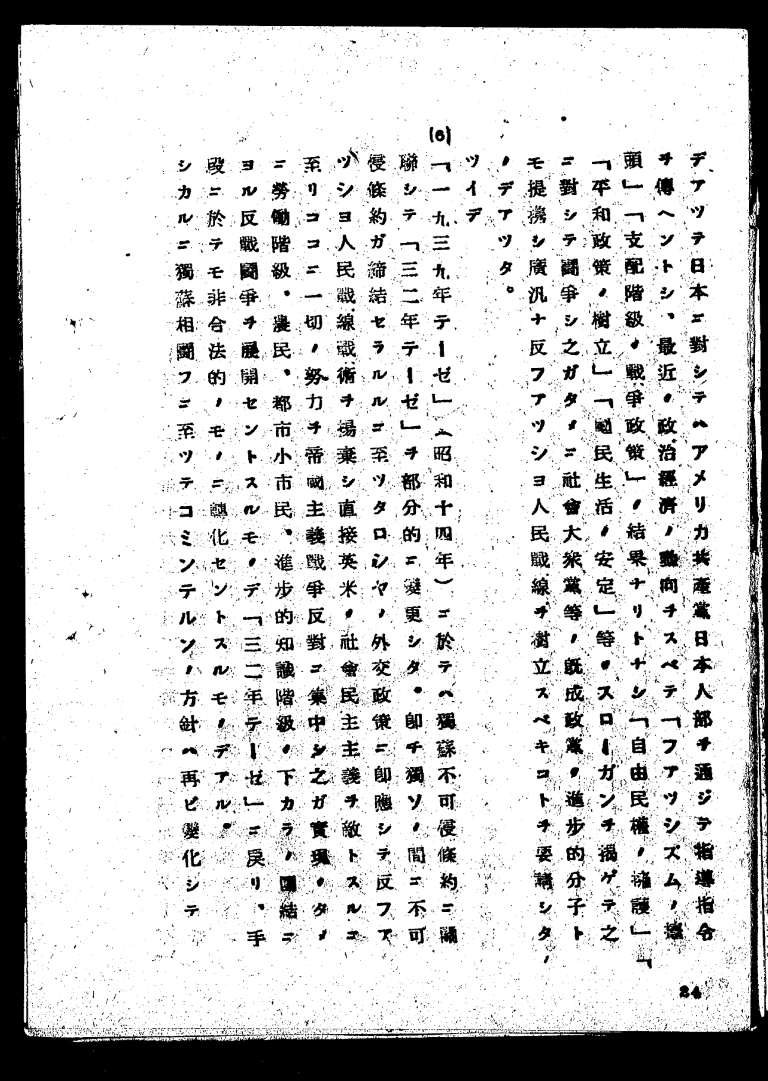 デアツテ日本ニ對シテハアメリカ共產黨日本人部ヲ通ジテ指導指令
ヲ傳ヘントシ、最近ノ政治經濟ノ動向ヲスベテ「フアツシズムノ擡
頭」「支配階級ノ戰爭政策」ノ結果ナリトナシ「自由民權ノ擁護」「
「平和政策ノ樹立」「國民生活ノ安定」等ノスローガンヲ揭ゲテ之
ニ對シテ鬪爭シ之ガタメニ社會大衆黨等ノ旣成政黨ノ進步的分子ト
モ提携シ廣汎ナ反フアツシヨ人民戰線ヲ樹立スベキコトヲ要請シタノ
ノデアツタ。
ツイデ
(6)
「一九三九年テーゼ」(昭和十四年)ニ於テハ獨蘇不可侵條約ニ關
聯シテ「三二年テーゼ」ヲ部分的ニ變更シタ。卽チ獨ソノ間ニ不可
侵條約ガ締結セラルルニ至ツタロシヤノ外交政策ニ卽應シテ反フア
ツシヨ人民戰線戰術ヲ揚棄シ直接英米ノ社會民主主義ヲ敵トスルニ
至リココニ一切ノ努力ヲ帝國主義戰爭反對ニ集中シ之ガ實現ノタメ
ニ勞働階級、農民、都市小市民、進步的知識階級ノ下カラノ團結ニ
ヨル反戰鬪爭ヲ展開セントスルモノデ「三二年テーゼ」ニ戾リ、手
段ニ於テモ非合法的ノモノニ轉化セントスルモノデアル。
シカルニ獨蘇相鬪フニ至ツテコミンテルンノ方針ハ再ビ變化シテ
24